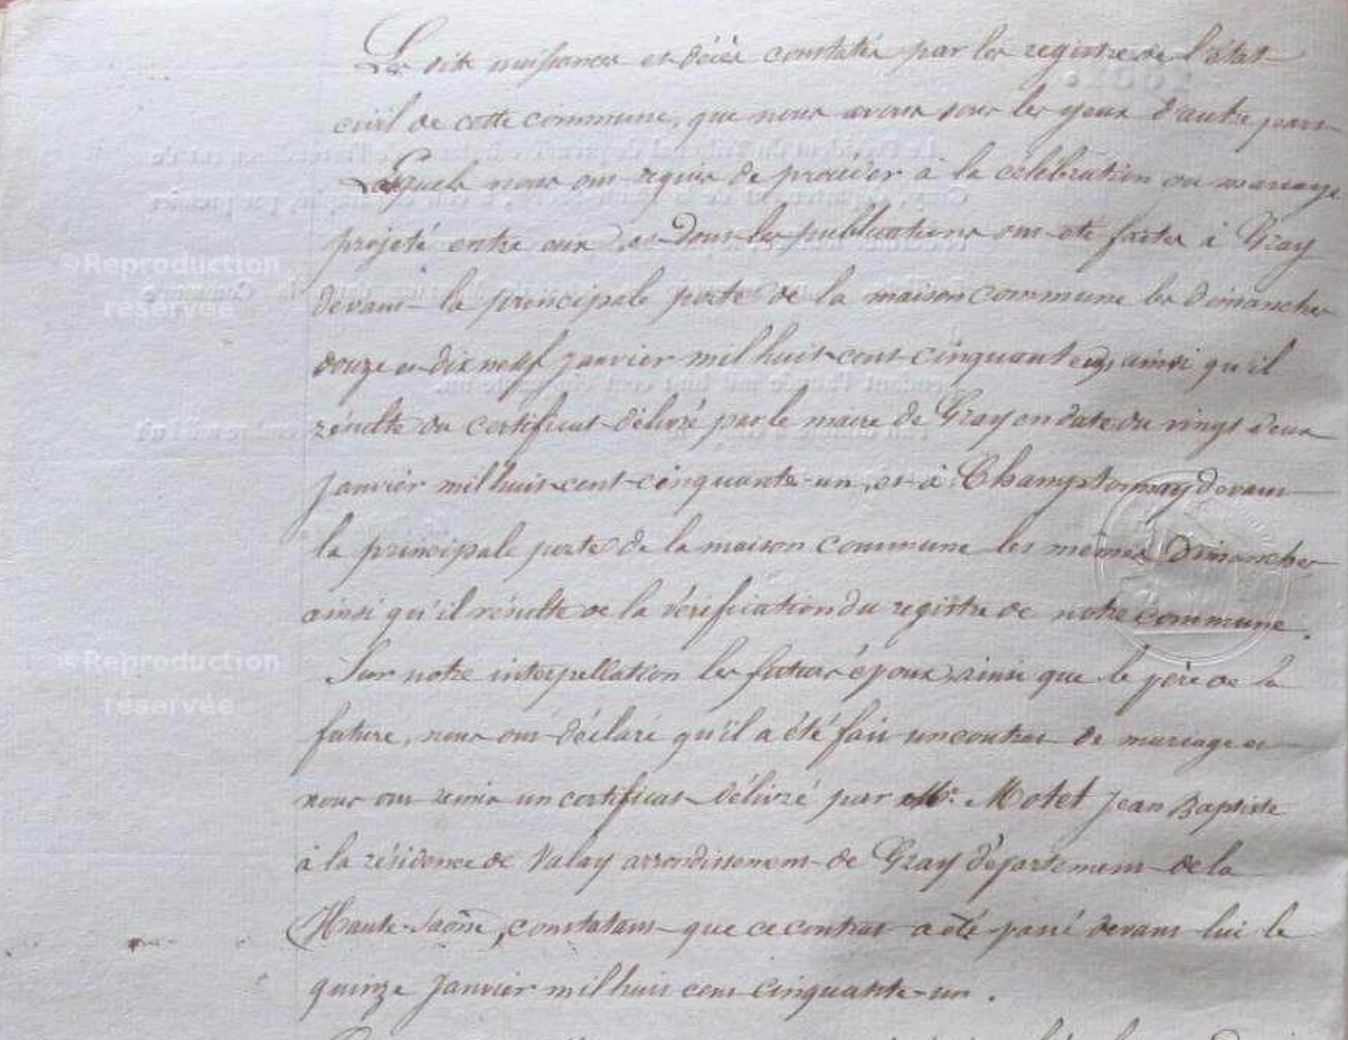 Les dits naissances et décès constatés par les registres de l'état
civil de cette commune, que nous avons sous les yeux d'autre part
Lesquels nous ont requis de procéder à la célébration du mariage
projeté entre eux, et dont les publications ont été faites à Gray
devant la principale porte de la maison commune les dimanches
douze et dix neuf janvier mil huit cent cinquante un, ainsi qu'il
résulte du certificat délivré par le maire de Gray en date du vingt deux
janvier mil huit cent cinquante-un, et à Champtonnay devant
la principale porte de la maison commune les memes Dimanches
ainsi qu'il résulte de la vérification du registre de notre commune.
Sur notre interpellation les futurs époux, ainsi que le père de la
future, nous ont déclaré qu'il a été fait un contrat de mariage et
nous ont remis un certificat délivré par Mr. Motet Jean Baptiste
à la résidence de Valay arrondissement de Gray département de la
Haute-Saône, constatant que ce contrat a été passé devant lui le
quinze Janvier mil huit cent cinquante-un.
©Reproduction
réservée
©Reproduction
réservée